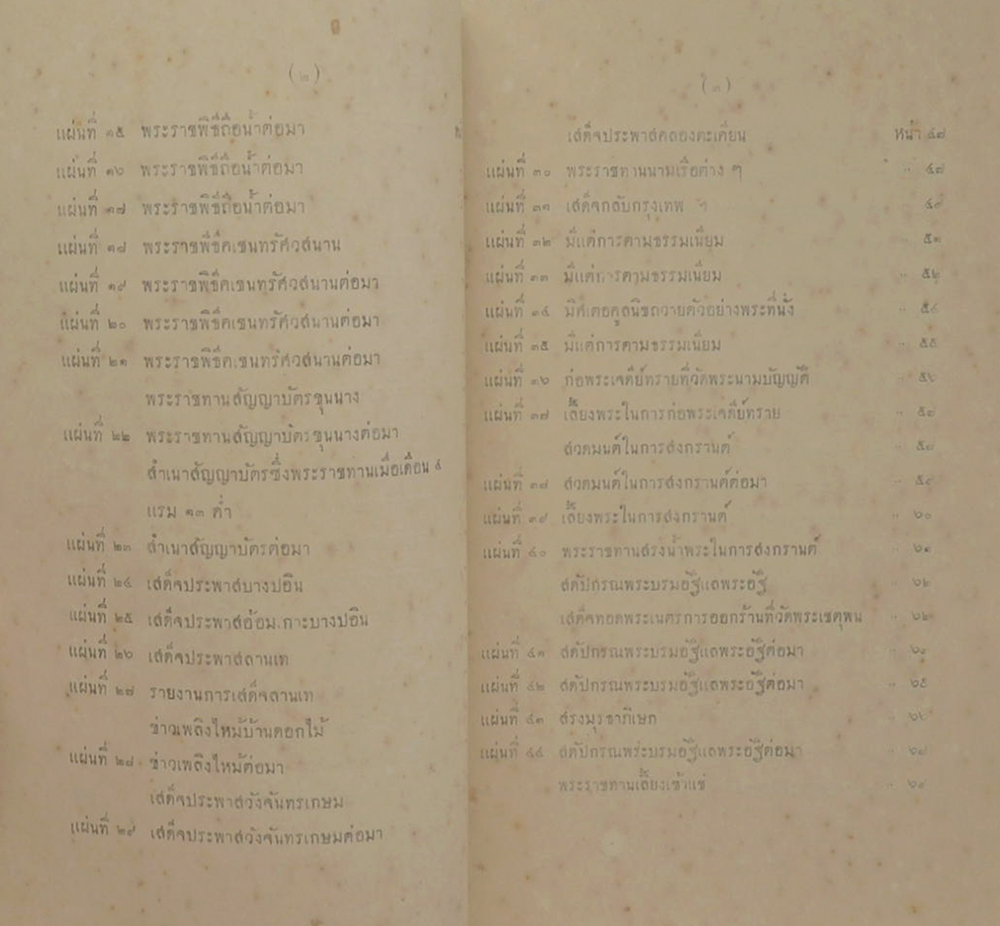 (๒)
แผ่นที่ ๑๕ พระราชพิธีถือน้ำต่อมา
แผ่นที่ ๑๖ พระราชพิธีถือน้ำต่อมา
แผ่นที่ ๑๗ พระราชพิธีถือน้ำต่อมา
แผ่นที่ ๑๘ พระราชพิธีคเชนทรัศวสนาน
แผ่นที่ ๑๙ พระราชพิธีคเชนทรัศวสนานต่อมา
แผ่นที่ ๒๐ พระราชพิธีคเชนทรัศวสนานต่อมา
แผ่นที่ ๒๑ พระราชพิธีคเชนทรัศวสนานต่อมา
พระราชทานสัญญาบัตรขุนนาง
แผ่นที่ ๒๒ พระราชทานสัญญาบัตรขุนนางต่อมา
สำเนาสัญญาบัตรซึ่งพระราชทานเมื่อเดือน ๔
แรม ๑๓ ค่ำ
แผ่นที่ ๒๓ สำเนาสัญญาบัตรต่อมา
แผ่นที่ ๒๔ เสด็จประพาสบางปอิน
แผ่นที่ ๒๕ เสด็จประพาสอ้อมเกาะบางปอิน
แผ่นที่ ๒๖ เสด็จประพาสลานเท
แผ่นที่ ๒๗ รายงานการเสด็จลานเท
ข่าวเพลิงไหม้บ้านดอกไม้
แผ่นที่ ๒๘ ข่าวเพลิงไหม้ต่อมา
เสด็จประพาสวังจันทรเกษม
แผ่นที่ ๒๙ เสด็จประพาสวังจันทรเกษมต่อมา
(๓)
เสด็จประพาสคลองตะเคียน หน้า ๔๗
แผ่นที่ ๓๐ พระราชทานนามเรือต่าง ๆ " ๔๗
แผ่นที่ ๓๑ เสด็จกลับกรุงเทพ ฯ ๔๙
แผ่นที่ ๓๒ มีแต่การตามธรรมเนียม ๕๑
แผ่นที่ ๓๓ มีแต่การตามธรรมเนียม " ๕๒
แผ่นที่ ๓๔ มิศเตอคูลนิชถวายตัวอย่างพระที่นั่ง " ๕๔
แผ่นที่ ๓๕ มีแต่การตามธรรมเนียม " ๕๕
แผ่นที่ ๓๖ ก่อพระเจดีย์ทรายที่วัดพระนามบัญญัติ " ๕๖
แผ่นที่ ๓๗ เลี้ยงพระในการก่อพระเจดีย์ทราย "
สวดมนต์ในการสงกรานต์ "
แผ่นที่ ๓๘ สวดมนต์ในการสงกรานต์ต่อมา " ๕๙
แผ่นที่ ๓๙ เลี้ยงพระในการสงกรานต์ " ๖๐
แผ่นที่ ๔๐ พระราชทานสรงน้ำพระในการสงกรานต์ " ๖๑
สดัปกรณพระบรมอัฐิแลพระอัฐิ " ๖๒
เสด็จทอดพระเนตรการออกร้านที่วัดพระเชตุพน " ๖๒
แผ่นที่ ๔๑ สดัปกรณพระบรมอัฐิแลพระอัฐิต่อมา "
แผ่นที่ ๔๒ สดัปกรณพระบรมอัฐิแลพระอัฐิต่อมา " ๖๕
แผ่นที่ ๔๓ สรงมุรธาภิเษก " ๖๖
แผ่นที่ ๔๔ สดัปกรณพระบรมอัฐิแลพระอัฐิต่อมา "
พระราชทานเลี้ยงเข้าแช่ " ๖๙